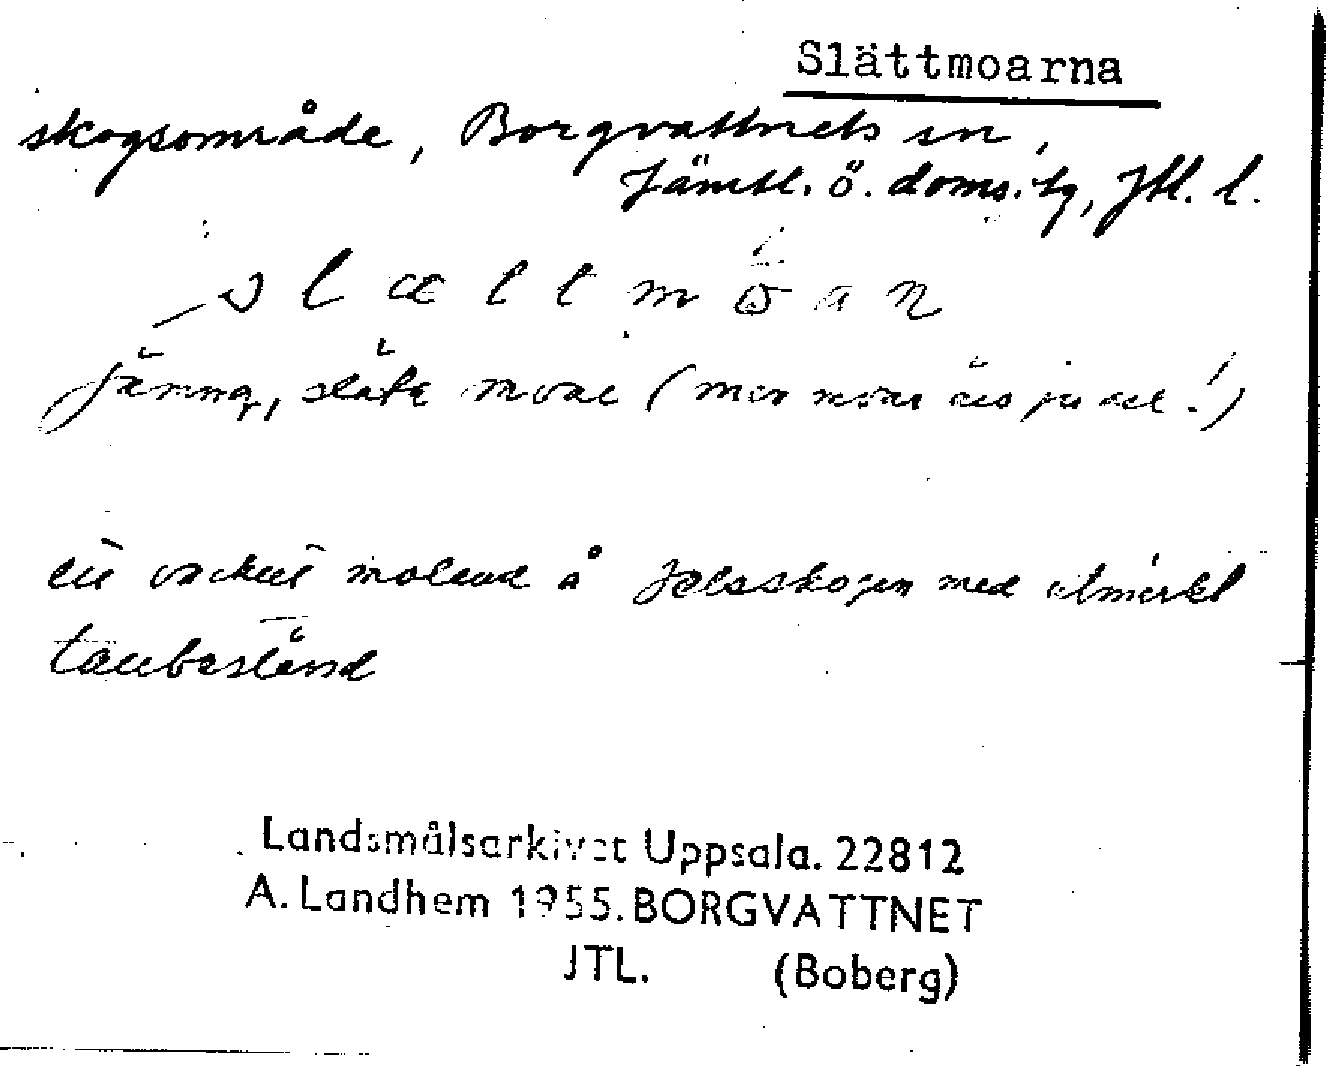 Slättmoarna
skogsområde, Borgvattnets sn,
Jämtl. ö. doms. tg, Jtl. l.
jämna, släta moar (men moar är ju det!)
ett vackert moland å Jelsskogen med utmärkt
tallbestånd
Landsmålsarkivet Uppsala. 22812
A. Landhem 1955. BORGVATTNET
JTL. (Boberg)